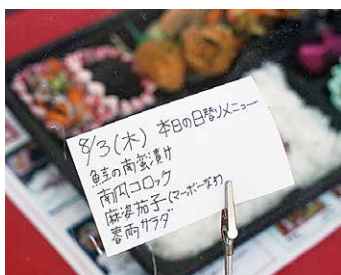 8/3(木) 本日の日替りメニュー
鮭の南蛮漬け
南瓜コロッケ
麻婆茄子(マーボーなす)
春雨サラダ